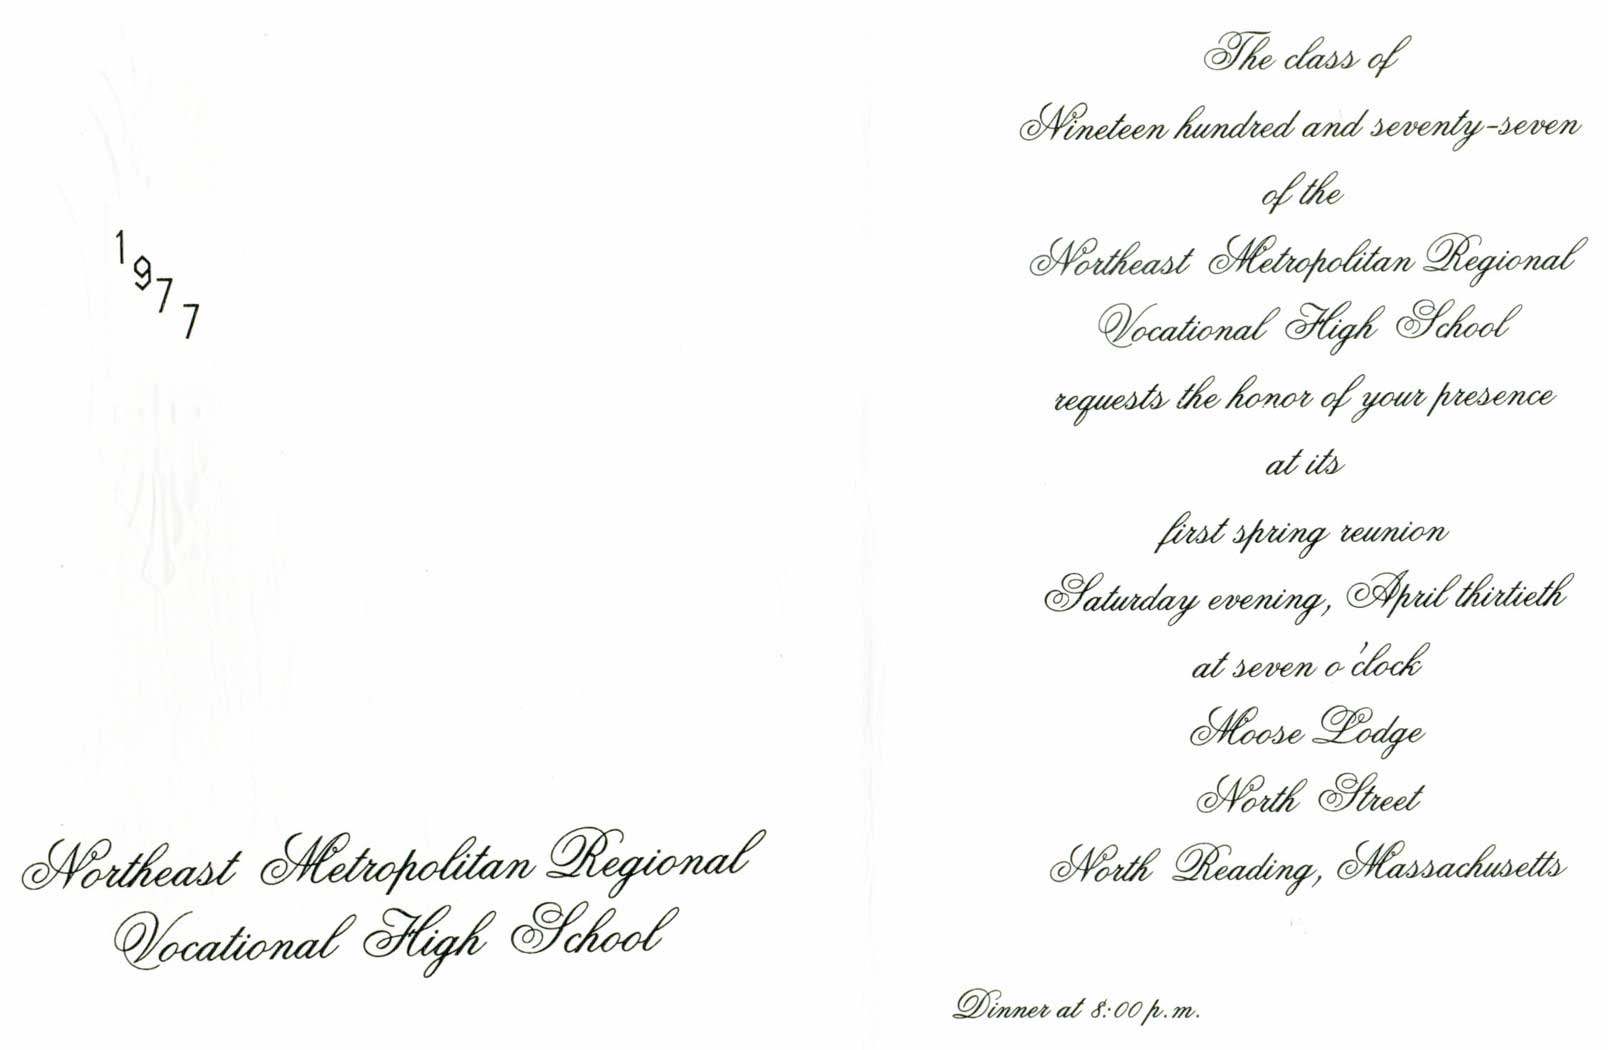 1977
Northeast Metropolitan Regional
Vocational High School
The class of
Nineteen hundred and seventy-seven
of the
Northeast Metropolitan Regional
Vocational High School
requests the honor of your presence
at its
first spring reunion
Saturday evening, April thirtieth
at seven o'clock
Moose Lodge
North Street
North Reading, Massachusetts
Dinner at 8:00 p.m.